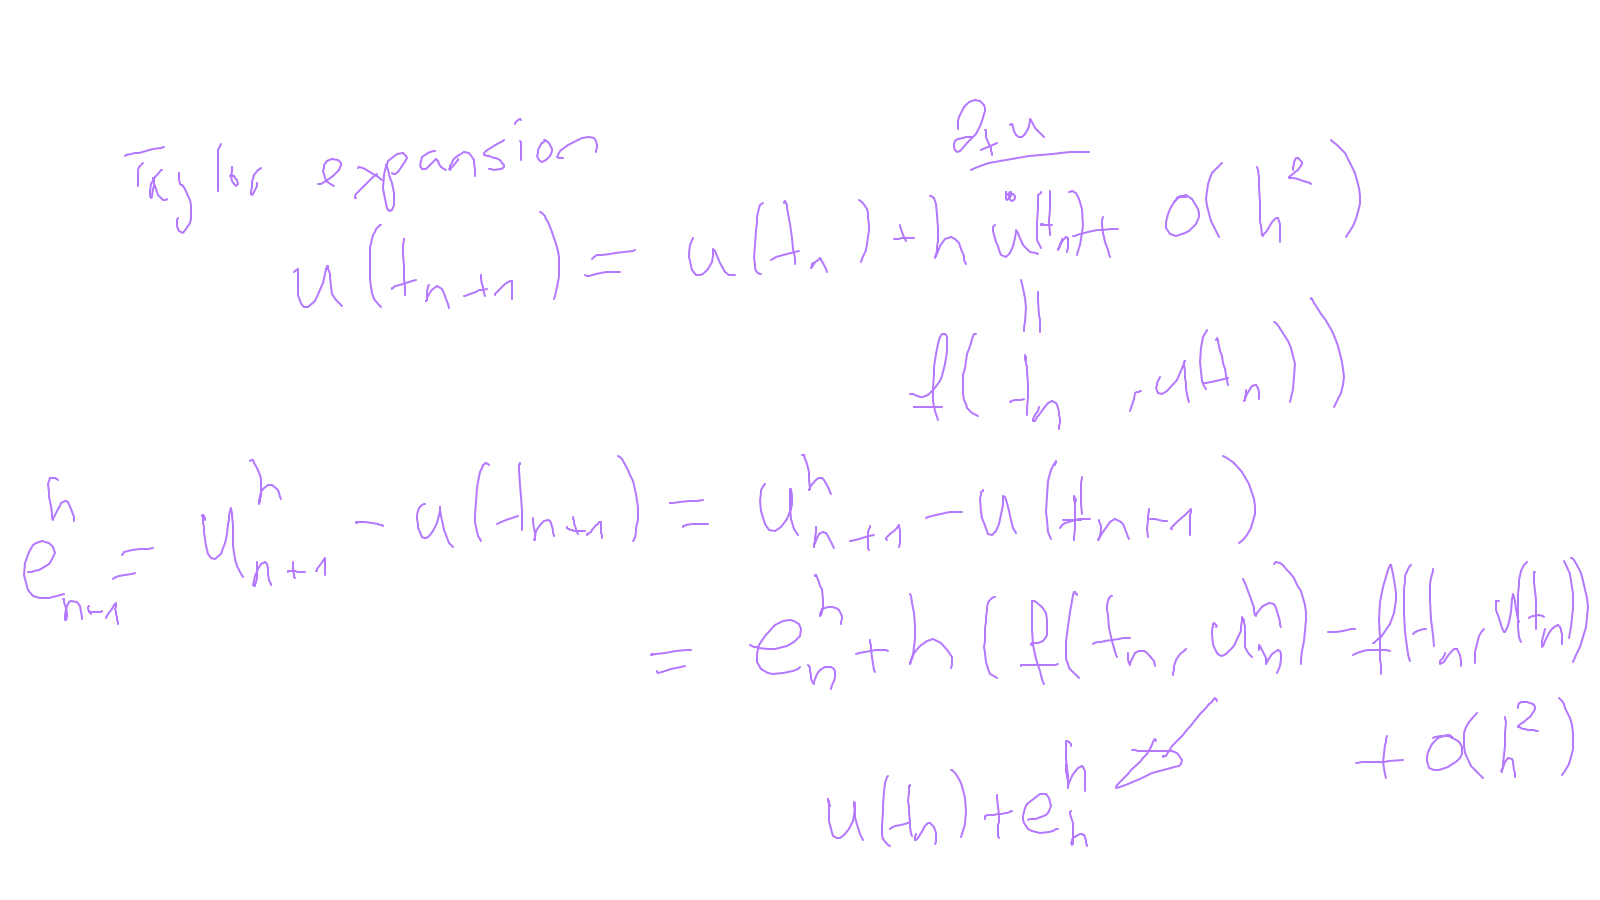 Taylor expansion
∂ₜu
u(tₙ₊₁) = u(tₙ) + h u̇(tₙ) + O(h²)
||
f(tₙ, u(tₙ))
eʰₙ₊₁ = uʰₙ₊₁ - u(tₙ₊₁) = uʰₙ₊₁ - u(tₙ₊₁)
= eʰₙ + h(f(tₙ, uʰₙ) - f(tₙ, u(tₙ))
+ O(h²)
u(tₙ) + eʰₙ